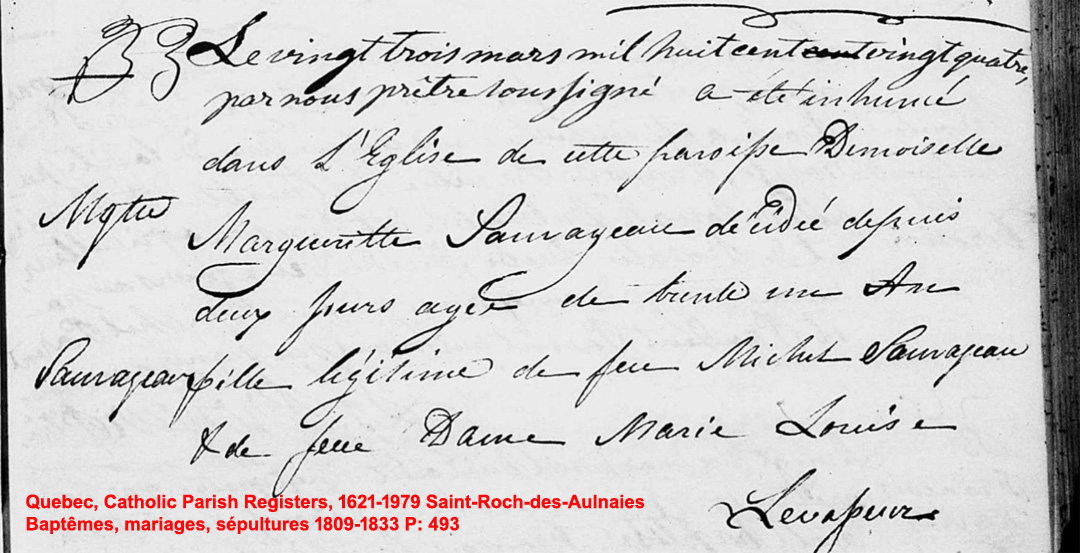 Le vingt trois mars mil huit cent cent vingt quatre,
par nous prêtre soussigné a été inhumé
dans L'Eglise de cette paroisse Demoiselle
Mgtte
Margueritte Sauvageau décidée depuis
deux jours agée de trente un An
Sauvageau
fille légitime de feu Michel Sauvageau
& de feue Dame Marie Louise
Levasseur
Quebec, Catholic Parish Registers, 1621-1979 Saint-Roch-des-Aulnaies
Baptêmes, mariages, sépultures 1809-1833 P: 493